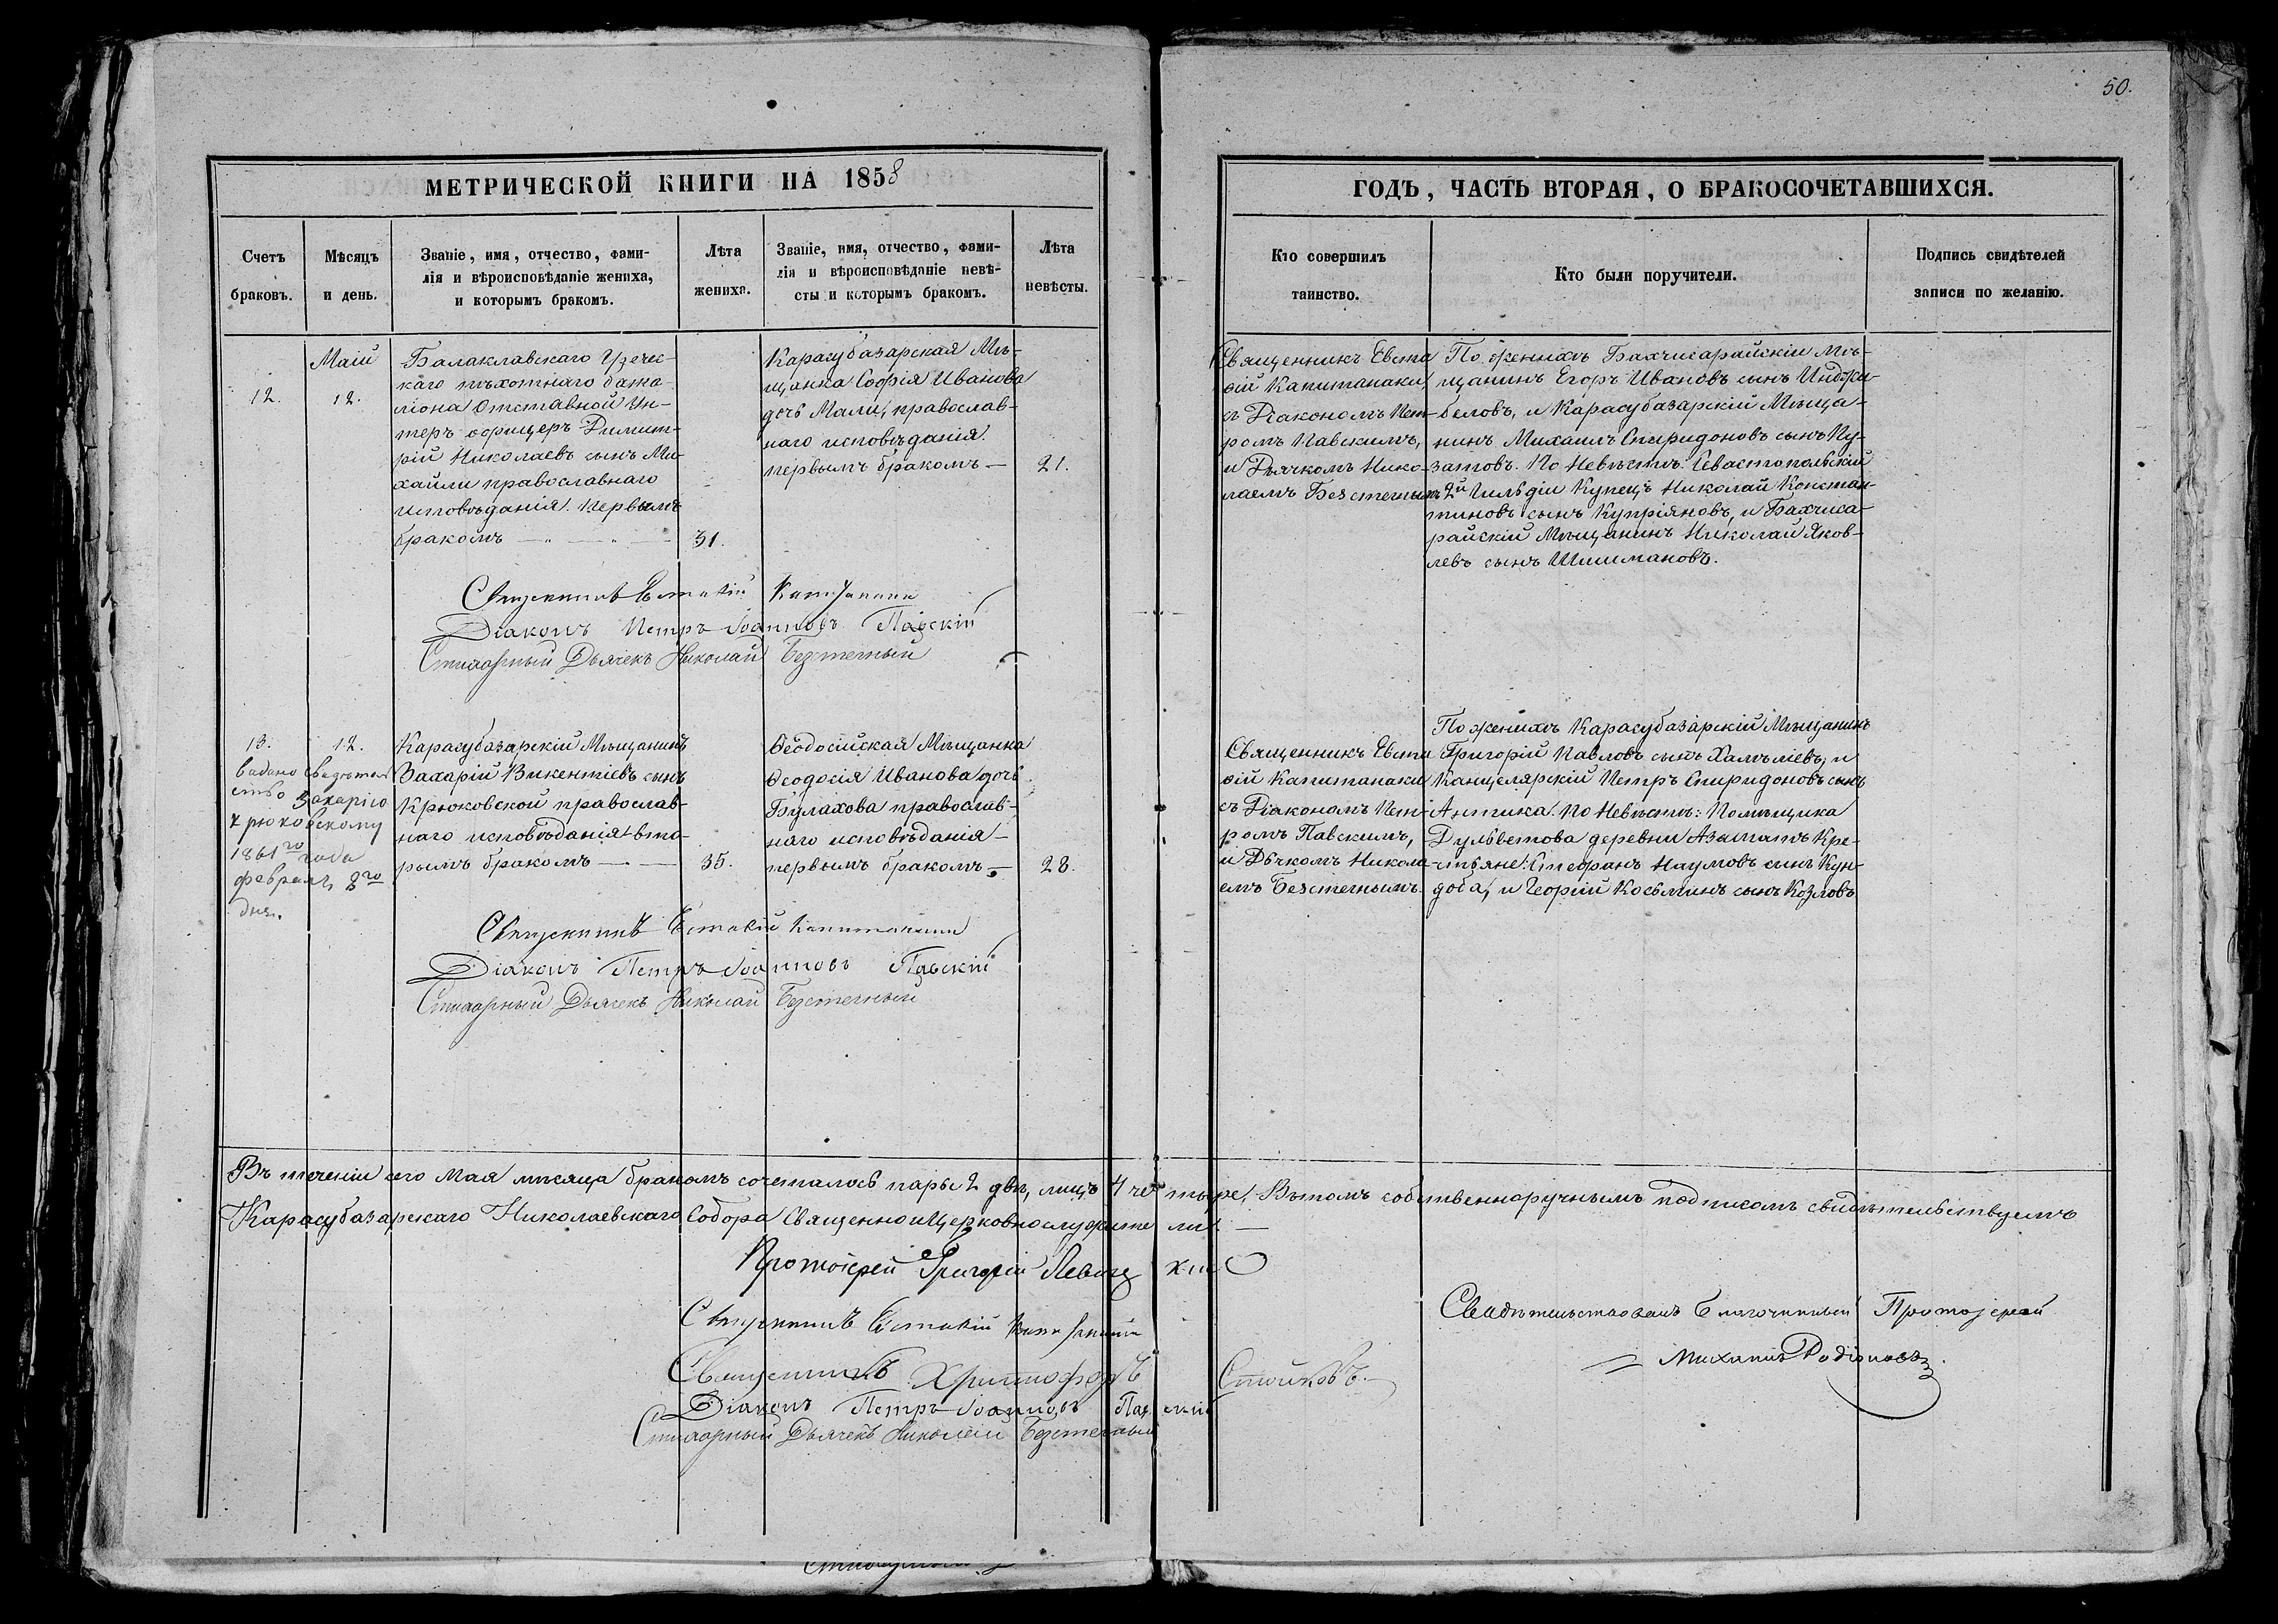 50.
МЕТРИЧЕСКОЙ КНИГИ НА 1858
Счетъ браковъ.
Мѣсяцъ и день.
Званіе, имя, отчество, фами-
лія и вѣроисповѣданіе жениха,
и которымъ бракомъ.
Лѣта жениха.
Званіе, имя, отчество, фами-
лія и вѣроисповѣданіе невѣ-
сты и которымъ бракомъ.
Лѣта невѣсты.
ГОДЪ, ЧАСТЬ ВТОРАЯ, О БРАКОСОЧЕТАВШИХСЯ.
Кто совершилъ
таинство.
Кто были поручители.
Подпись свидѣтелей
записи по желанію.
12.
Маій
12.
Балаклавскаго Гречес-
каго пѣхотнаго бата-
ліона Отставной Ун-
теръ офицеръ Димит-
рій Николаевъ сынъ Ми-
хайли православнаго
исповѣданія. Первымъ
бракомъ
31.
Карасубазарская Мѣ-
щанка Софія Иванова
дочь Мали, православ-
наго исповѣданія.
первымъ бракомъ —
21.
Священникъ Евста
ѳій Капитанаки,
съ Діакономъ Пет-
ромъ Павскимъ,
и Дьячкомъ Нико-
лаемъ Безстечнымъ
По женихѣ Бахчисарайскій Мѣ-
щанинъ Егоръ Ивановъ сынъ Инджи-
беловъ, и Карасубазарскій Мѣща-
нинъ Михаилъ Спиридоновъ сынъ Пу-
затовъ. По Невѣстѣ: Севастопольскій
2й Гильдіи Купецъ Николай Констан-
тиновъ сынъ Купріяновъ, и Бахчиса-
райскій Мѣщанинъ Николай Яков-
левъ сынъ Шишмановъ.
Священникъ Евстаѳій Капитанаки
Діаконъ Петръ Іоанновъ Павскій
Стихарный Дьячекъ Николай Безстечный
13.
12.
видано свидѣтель
ство Захарію
Крюковскому
1861го года
февраля 8го
дня.
Карасубазарскій Мѣщанинъ
Захарій Викентіевъ сынъ
Крюковской православ-
наго исповѣданія вто-
рымъ бракомъ — —
35.
Ѳеодосійская Мѣщанка
Ѳеодосія Иванова дочь
Булахова православ-
наго исповѣданія —
первымъ бракомъ —
28.
Священникъ Евста
ѳій Капитанаки
съ Діакономъ Пет-
ромъ Павскимъ,
и Дѣчкомъ Никола-
емъ Безстечнымъ.
По женихѣ Карасубазарскій Мѣщанинъ
Григорій Павловъ сынъ Халчіевъ, и
Канцелярскій Петръ Спиридоновъ сынъ
Антика. По Невѣстѣ: Помѣщика
Дульветова деревни Азаматъ Кре-
стьяне: Стефанъ Наумовъ сынъ Кун-
доба, и Георгій Косьминъ сынъ Козловъ
Священникъ Евстаѳій Капитанаки
Діаконъ Петръ Іоанновъ Павскій
Стихарный Дьячекъ Николай Безстечный
Въ теченіи сего Мая мѣсяца бракомъ сочеталось пары 2 двѣ, лицъ 4 четыре. Въ томъ собственноручнымъ подписомъ свидѣтельствуемъ
Карасубазарскаго Николаевскаго Собора Священноицерковнослужители —
Протоіерей Григорій
Священникъ Евстаѳій Капитанаки
Священникъ Христофоръ Стойковъ.
Діаконъ Петръ Іоанновъ Павскій
Стихарный Дьячекъ Николай Безстечный
Свидѣтельствовалъ Благочинный Протоіерей
Михаилъ Родіоновъ